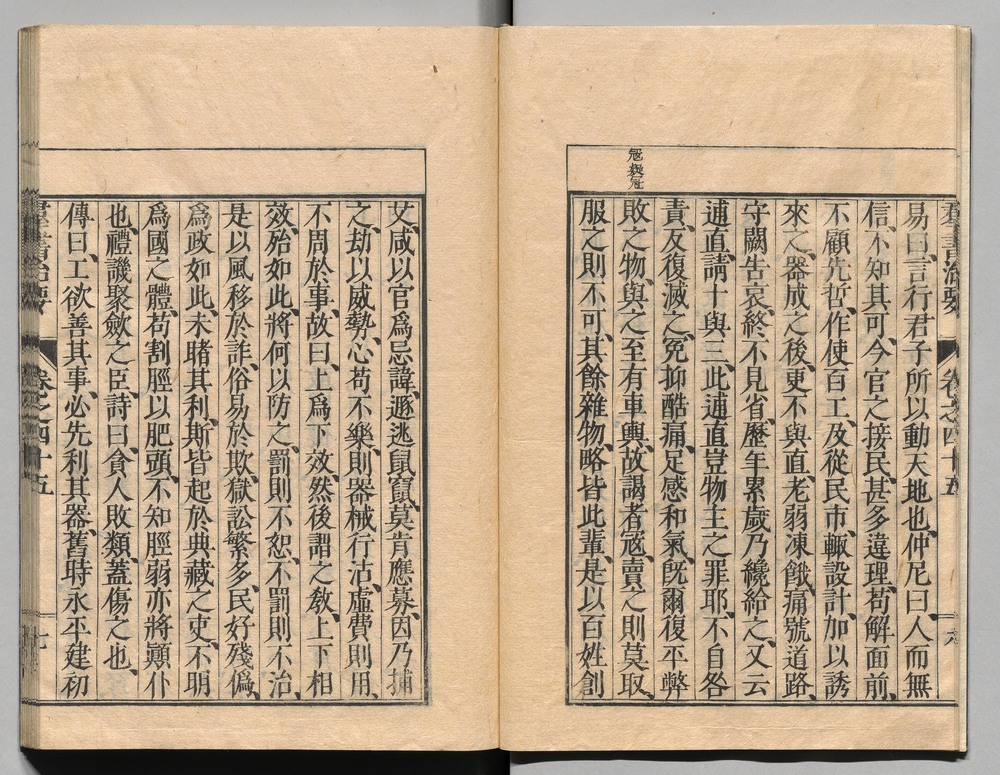 羣書治要 卷之四十五 六
冦疑冠
易曰、言行君子所以動天地也、仲尼曰、人而無
信、不知其可、今官之接民、甚多違理、苟解面前、
不顧先哲、作使百工、及從民市、輒設計加以誘
來之、器成之後、更不與直、老弱凍餓、痛號道路、
守闕告哀、終不見省、歷年累歲、乃纔給之、又云
逋直、請十與三、此逋直豈物主之罪耶、不自咎
責、反復滅之、冤抑酷痛、足感和氣、既爾復平弊
敗之物、與之至有車輿、故謁者冦、賣之則莫取、
服之則不可、其餘雜物、略皆此輩、是以百姓創
艾、咸以官爲忌諱、遯逃鼠竄、莫肯應募、因乃捕
之、劫以威勢、心苟不樂、則器械行沽、虛費則用、
不周於事、故曰、上爲下效、然後謂之敎、上下相
效、殆如此、將何以防之、罰則不恕、不罰則不治、
是以風移於詐、俗易於欺、獄訟繁多、民好殘僞、
爲政如此、未睹其利、斯皆起於典藏之吏、不明
爲國之體、苟割脛以肥頭、不知脛弱亦將顚仆
也、禮譏聚斂之臣、詩曰、貪人敗類、蓋傷之也、
傳曰、工欲善其事、必先利其器、舊時永平建初
羣書治要 卷之四十五 七